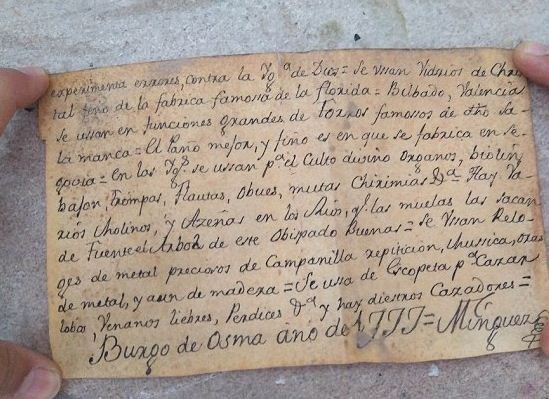 experimenta errores, contra la Yg.ª de Dios = Se ussan Vidrios de Chris
tal fino de la fabrica famossa de la florida = Bilbado, Valencia
se ussan en funciones grandes de toros famossos de año Sa
lamanca = El Paño mejor, y fino es en que se fabrica en Se
govia = en las Yg.s se ussan p.ª el Culto divino Organos, biolin,
bajon, Trompas, Flautas, Obues, mutas Chirimias &ª = Hay Va
rios Molinos, y Azeñas en los Rios, q.e las muelas las sacan
de Fuente el Arbol de este Obispado Buenas = Se Ussan Relo
ges de metal preciosos de Campanilla repitición, Mussica, otros
de metal, y aun de madera = Se ussa de Escopeta p.ª Cazar
lobos, Venanos liebres, Perdices &ª y hay diestros Cazadores =
Burgo de Osma año de 1777 = Minguez